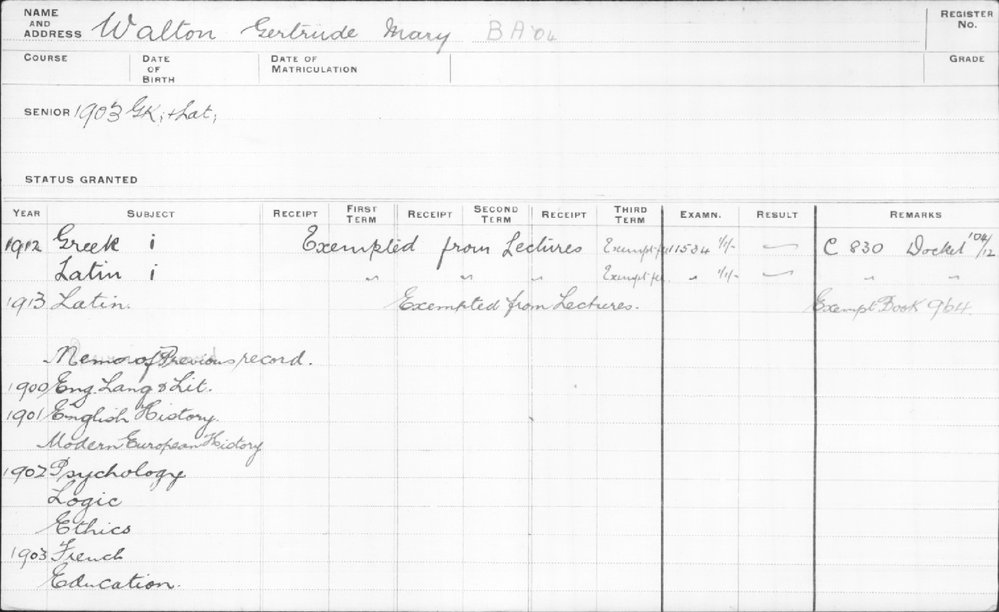 NAME AND ADDRESS Walton Gertrude Mary BA '04 REGISTER No.
COURSE DATE OF BIRTH DATE OF MATRICULATION GRADE
SENIOR 1903 Gk, + Lat,
STATUS GRANTED
YEAR SUBJECT RECEIPT FIRST TERM RECEIPT SECOND TERM RECEIPT THIRD TERM EXAMN. RESULT REMARKS
1912 Greek i Exempted from Lectures Exempt fee 11534 1/1/- C 830 Docket '04/12
Latin i " " " Exempt fee " 1/1/- " "
1913 Latin. Exempted from Lectures. Exempt Book 964.
Memo of Previous record.
1900 Eng. Lang & Lit.
1901 English History.
Modern European History
1902 Psychology
Logic
Ethics
1903 French
Education.